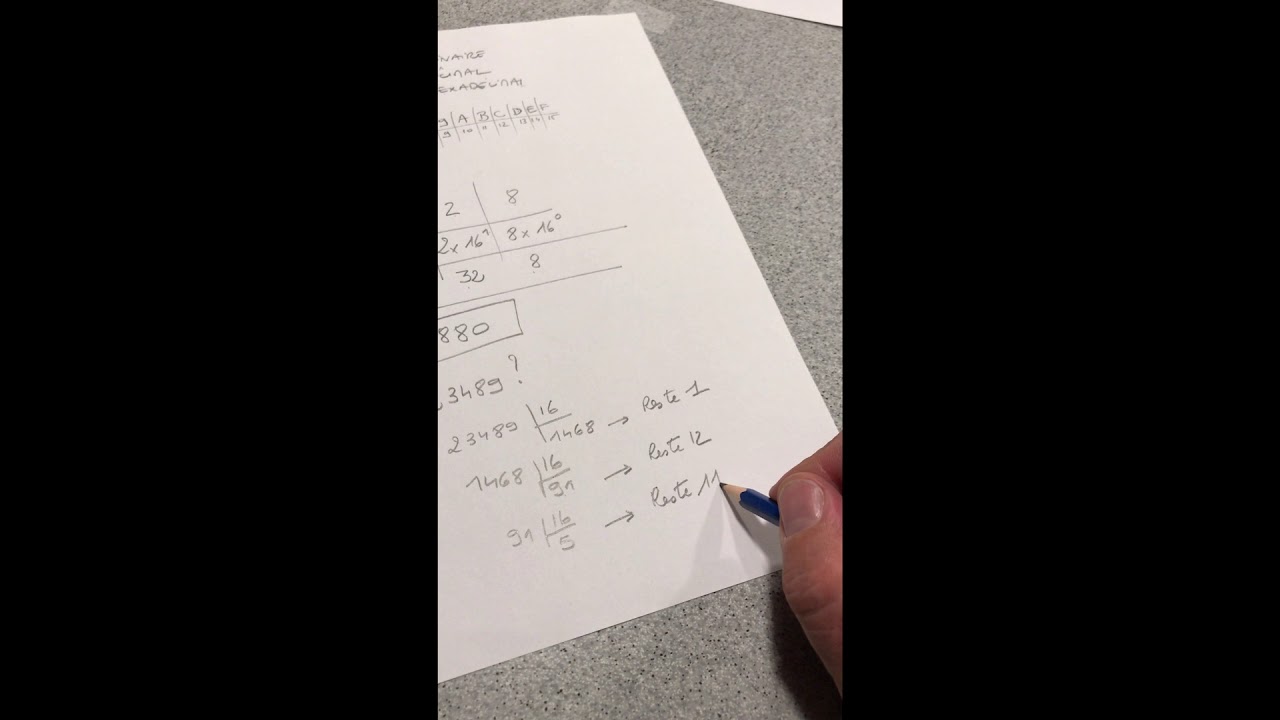 NAIRE
CIMAL
EXADÉCIMAL
9 A B C D E F
9 10 11 12 13 14 15
2 8
2x16¹ 8x16⁰
32 8
880
23489 ?
23489 16 1468 → Reste 1
1468 16 91 → Reste 12
91 16 5 → Reste 11